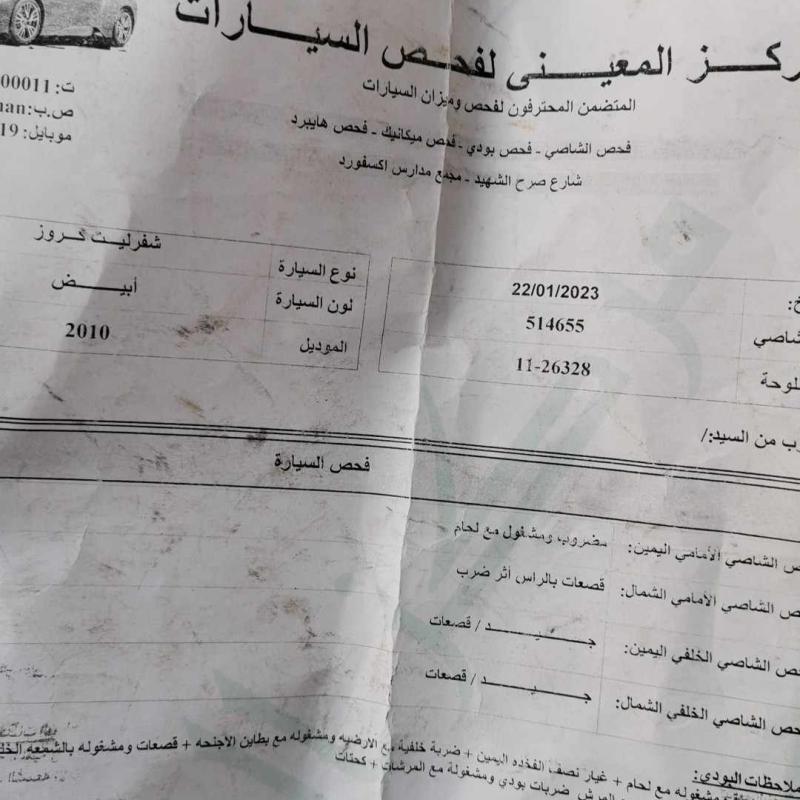 ركز المعينى لفحص السيارات
المتضمن المحترفون لفحص وميزان السيارات
فحص الشاصي - فحص بودي - فحص ميكانيك - فحص هايبرد
شارع صرح الشهيد - مجمع مدارس اكسفورد
ت: 00011
ص.ب: nan
موبايل: 19
22/01/2023
شاصي 514655
لوحة 11-26328
نوع السيارة شفرليت كروز
لون السيارة أبيض
الموديل 2010
ب من السيد:/
فحص السيارة
ص الشاصي الأمامي اليمين: مضروب ومشغول مع لحام
ص الشاصي الأمامي الشمال: قصعات بالراس أثر ضرب
ص الشاصي الخلفي اليمين: جيد / قصعات
ص الشاصي الخلفي الشمال: جيد / قصعات
ملاحظات البودي:
ومشغوله مع لحام + غيار نصف الفخده اليمين + ضربة خلفية مع الارضيه ومشغوله مع بطاين الاجنحه + قصعات ومشغوله بالشمعه
ضربات بودي ومشغولة مع المرشات + كحتات